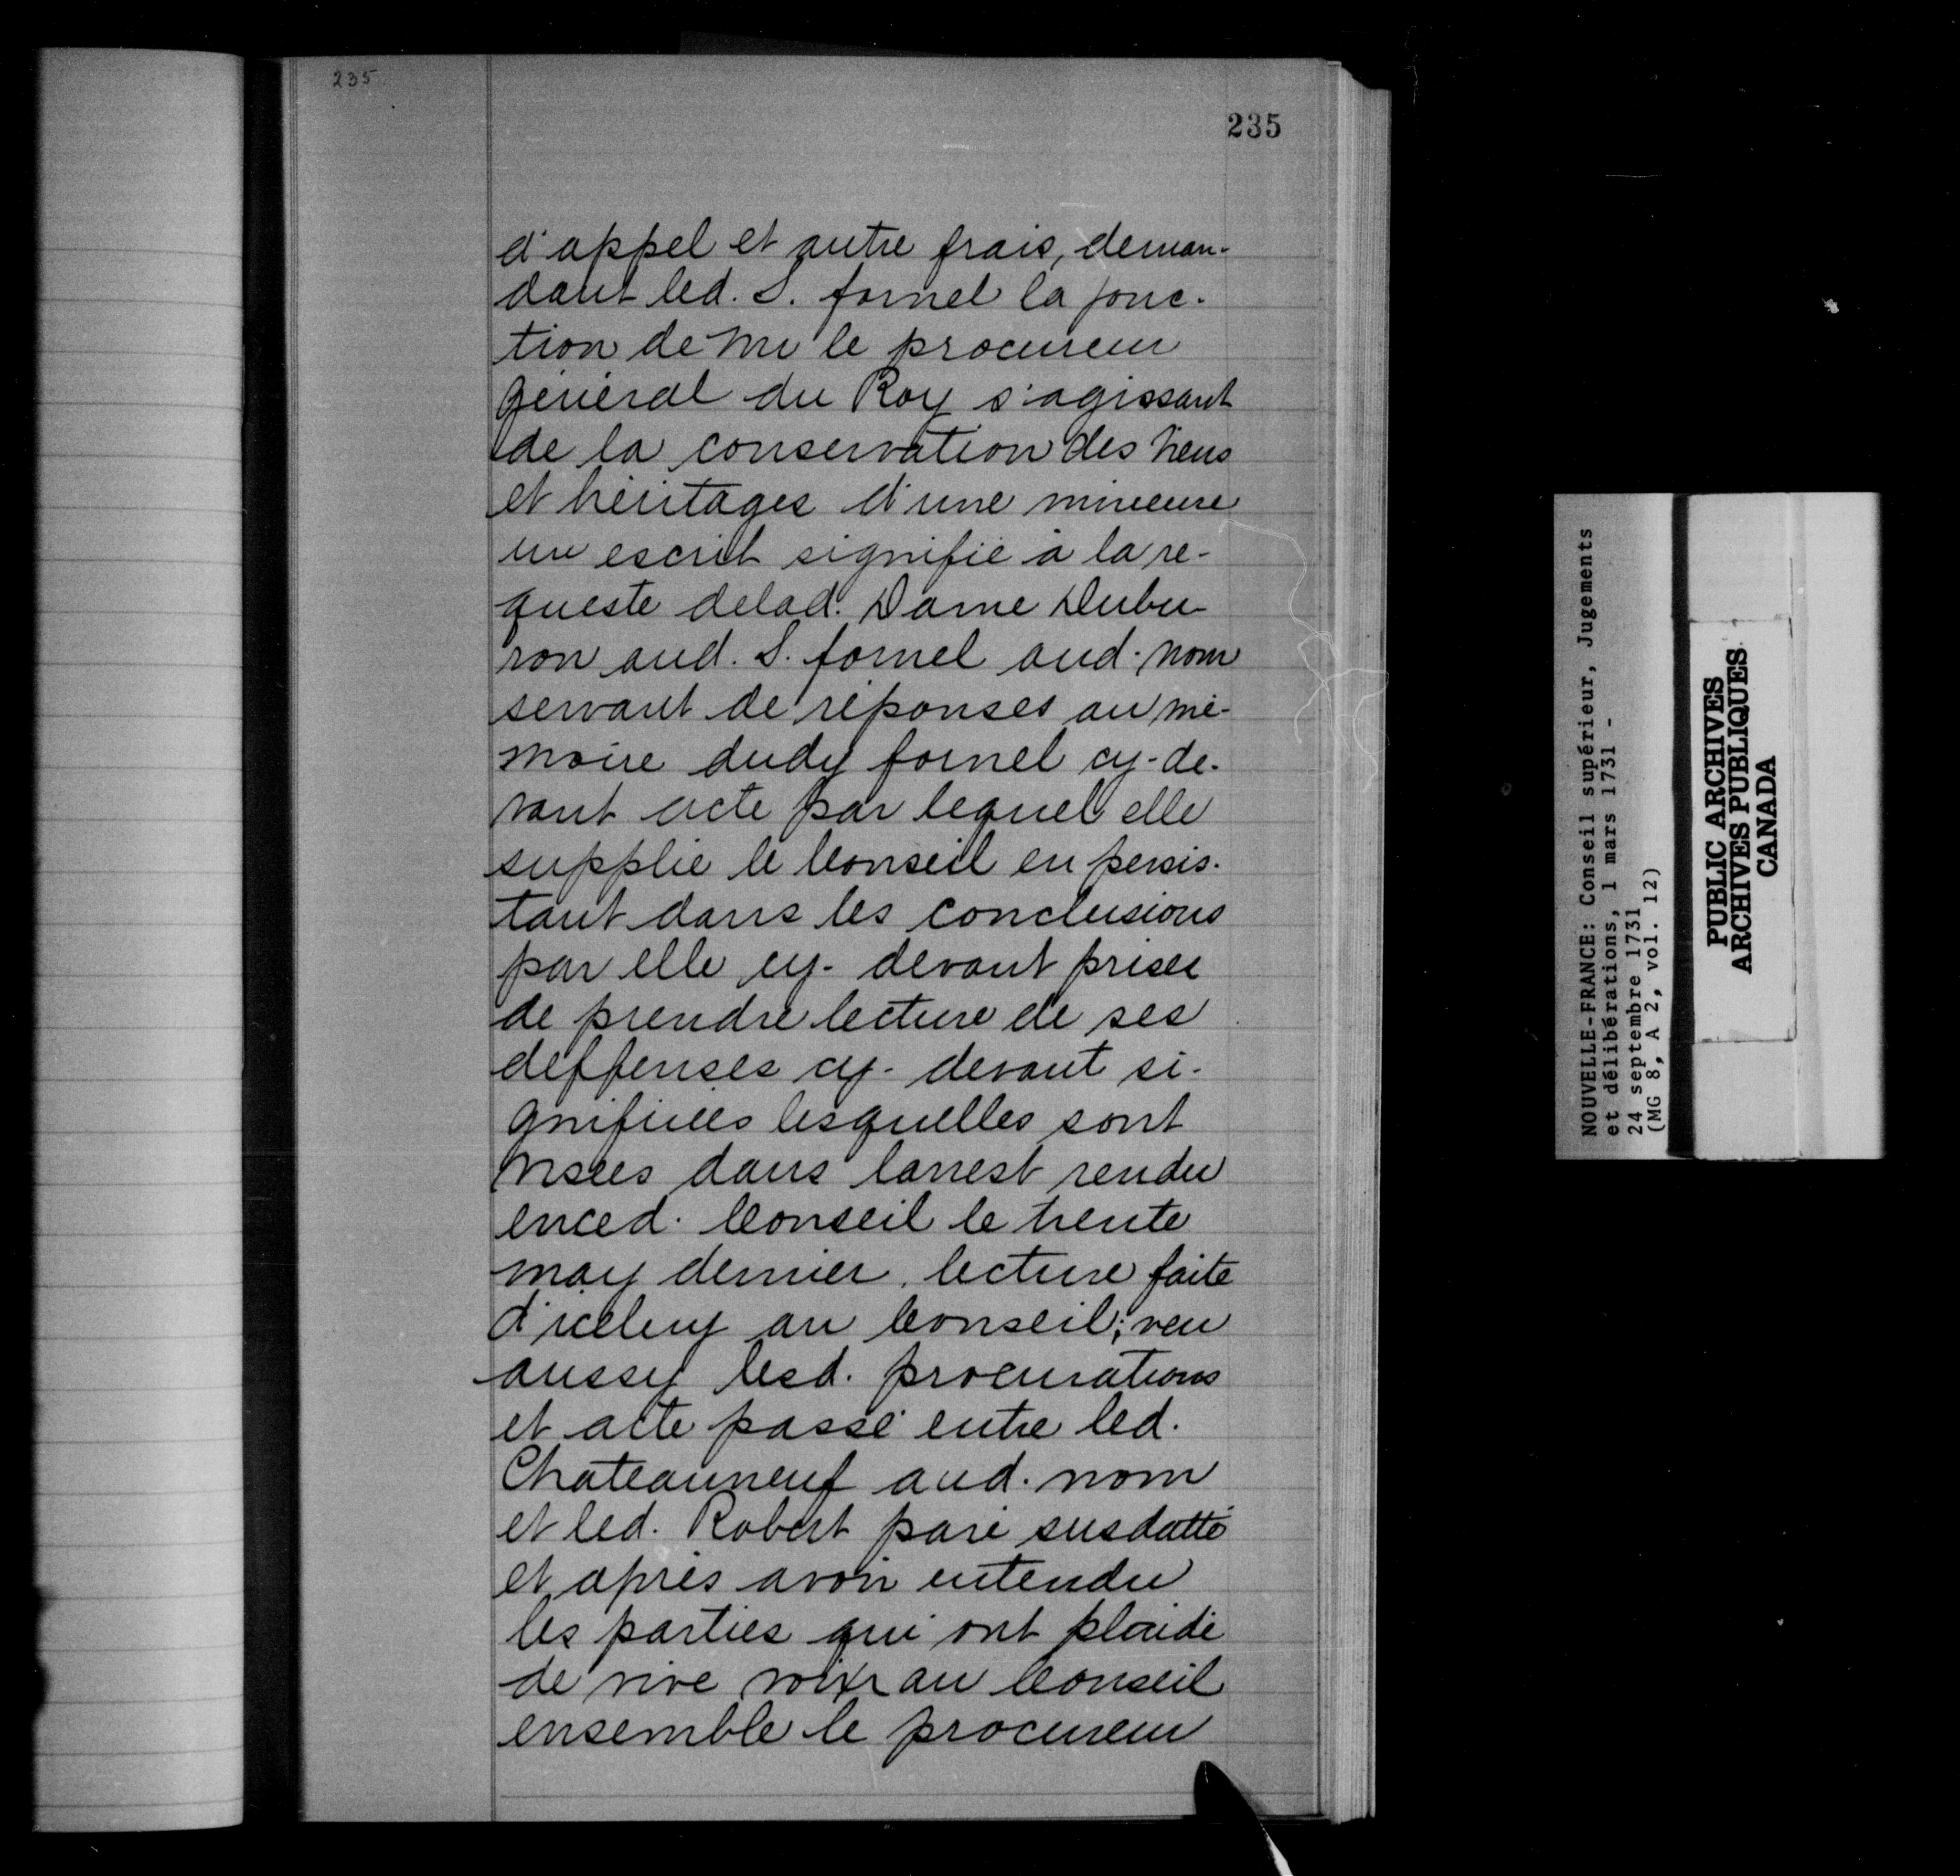 235
235
d'appel et autre frais, deman-
dant led. S. fornel la jonc-
tion de Mr le procureur
général du Roy s'agissant
de la conservation des biens
et héritages d'une mineure
un escrit signifié à la re-
queste delad. Dame Dubu-
ron aud. S. fornel aud. nom
servant de réponses au mé-
moire dudy fornel cy-de-
vant acte par lequel elle
supplie le Conseil en persis-
tant dans les conclusions
par elle cy-devant prises
de prendre lecture de ses
deffenses cy-devant si-
gnifiées lesquelles sont
visées dans larrest rendu
enced. Conseil le trente
may dernier, lecture faite
d'iceluy au Conseil; veu
aussy lesd. procurations
et acte passé entre led.
Chateauneuf aud. nom
et led. Robert paré susdatté
et après avoir entendu
les parties qui ont plaidé
de vive voix au Conseil
ensemble le procureur
NOUVELLE-FRANCE: Conseil supérieur, Jugements
et délibérations, 1 mars 1731 -
24 septembre 1731
(MG 8, A 2, vol. 12)
PUBLIC ARCHIVES
ARCHIVES PUBLIQUES
CANADA